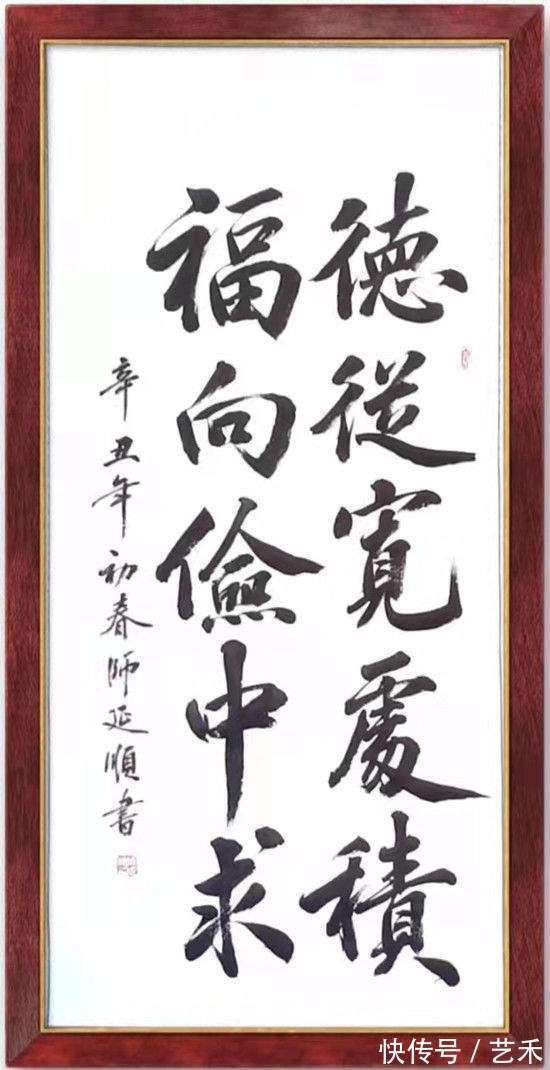 德從寬處積
福向儉中求
辛丑年初春師延順書
快传号/艺禾